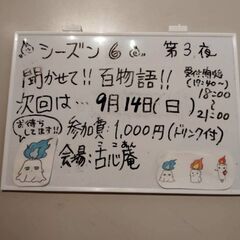 シーズン6 第3夜
聞かせて!! 百物語!!
受付開始
(17:40~)
次回は… 9月14日(日)
18:00
~
21:00
お待ちしてます!!
参加費:1,000円(ドリンク付)
会場:古心庵
こしんあん